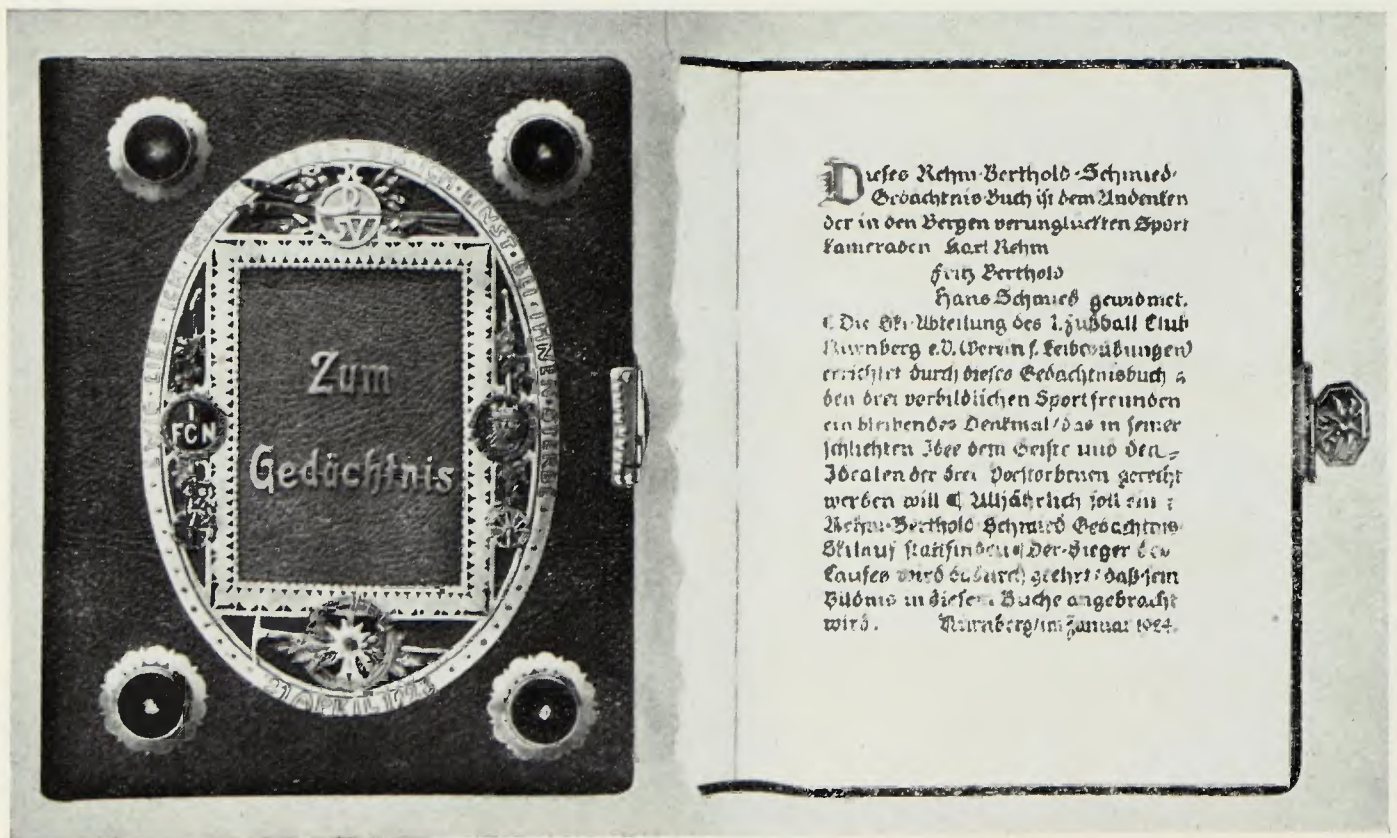 EWIG · LIEB · ICH · EINST · BEI · IHNEN · STERBE
1
FCN
Zum
Gedächtnis
21 APRIL 1923
Dieses Rehm-Berthold-Schmied-
Gedächtnis-Buch ist dem Andenken
der in den Bergen verunglückten Sport
kameraden Karl Rehm
Fritz Berthold
Hans Schmied gewidmet.
¶ Die Ski-Abteilung des 1. Fußball Club
Nürnberg e.V. (Verein f. Leibesübungen)
errichtet durch dieses Gedächtnisbuch
den drei vorbildlichen Sportfreunden
ein bleibendes Denkmal / das in seiner
schlichten Idee dem Geiste und den
Idealen der drei Verstorbenen gerecht
werden will ¶ Alljährlich soll ein
Rehm-Berthold-Schmied Gedächtnis-
Skilauf stattfinden ¶ Der Sieger des
Laufes wird dadurch geehrt / daß sein
Bildnis in diesem Buche angebracht
wird. Nürnberg / im Januar 1924.